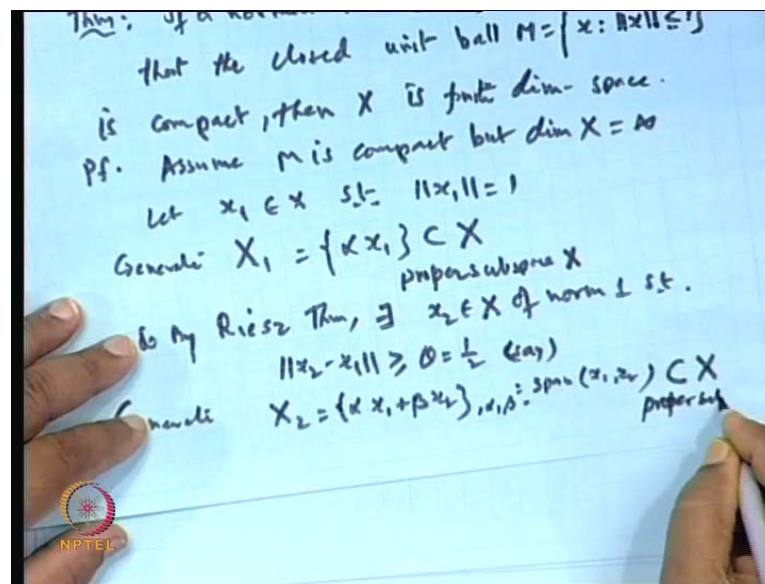 Thm: If a
that the closed unit ball M = { x : ||x|| ≤ 1 }
is compact, then X is finite dim- space.
Pf. Assume M is compact but dim X = ∞
Let x₁ ∈ X s.t. ||x₁|| = 1
Generate X₁ = { α x₁ } ⊂ X
proper subspace X
So by Riesz Thm, ∃ x₂ ∈ X of norm 1 s.t.
||x₂ - x₁|| ≥ θ = 1/2 (say)
Generate X₂ = { α x₁ + β x₂ }, α, β : span (x₁, x₂) ⊂ X
proper sub
NPTEL